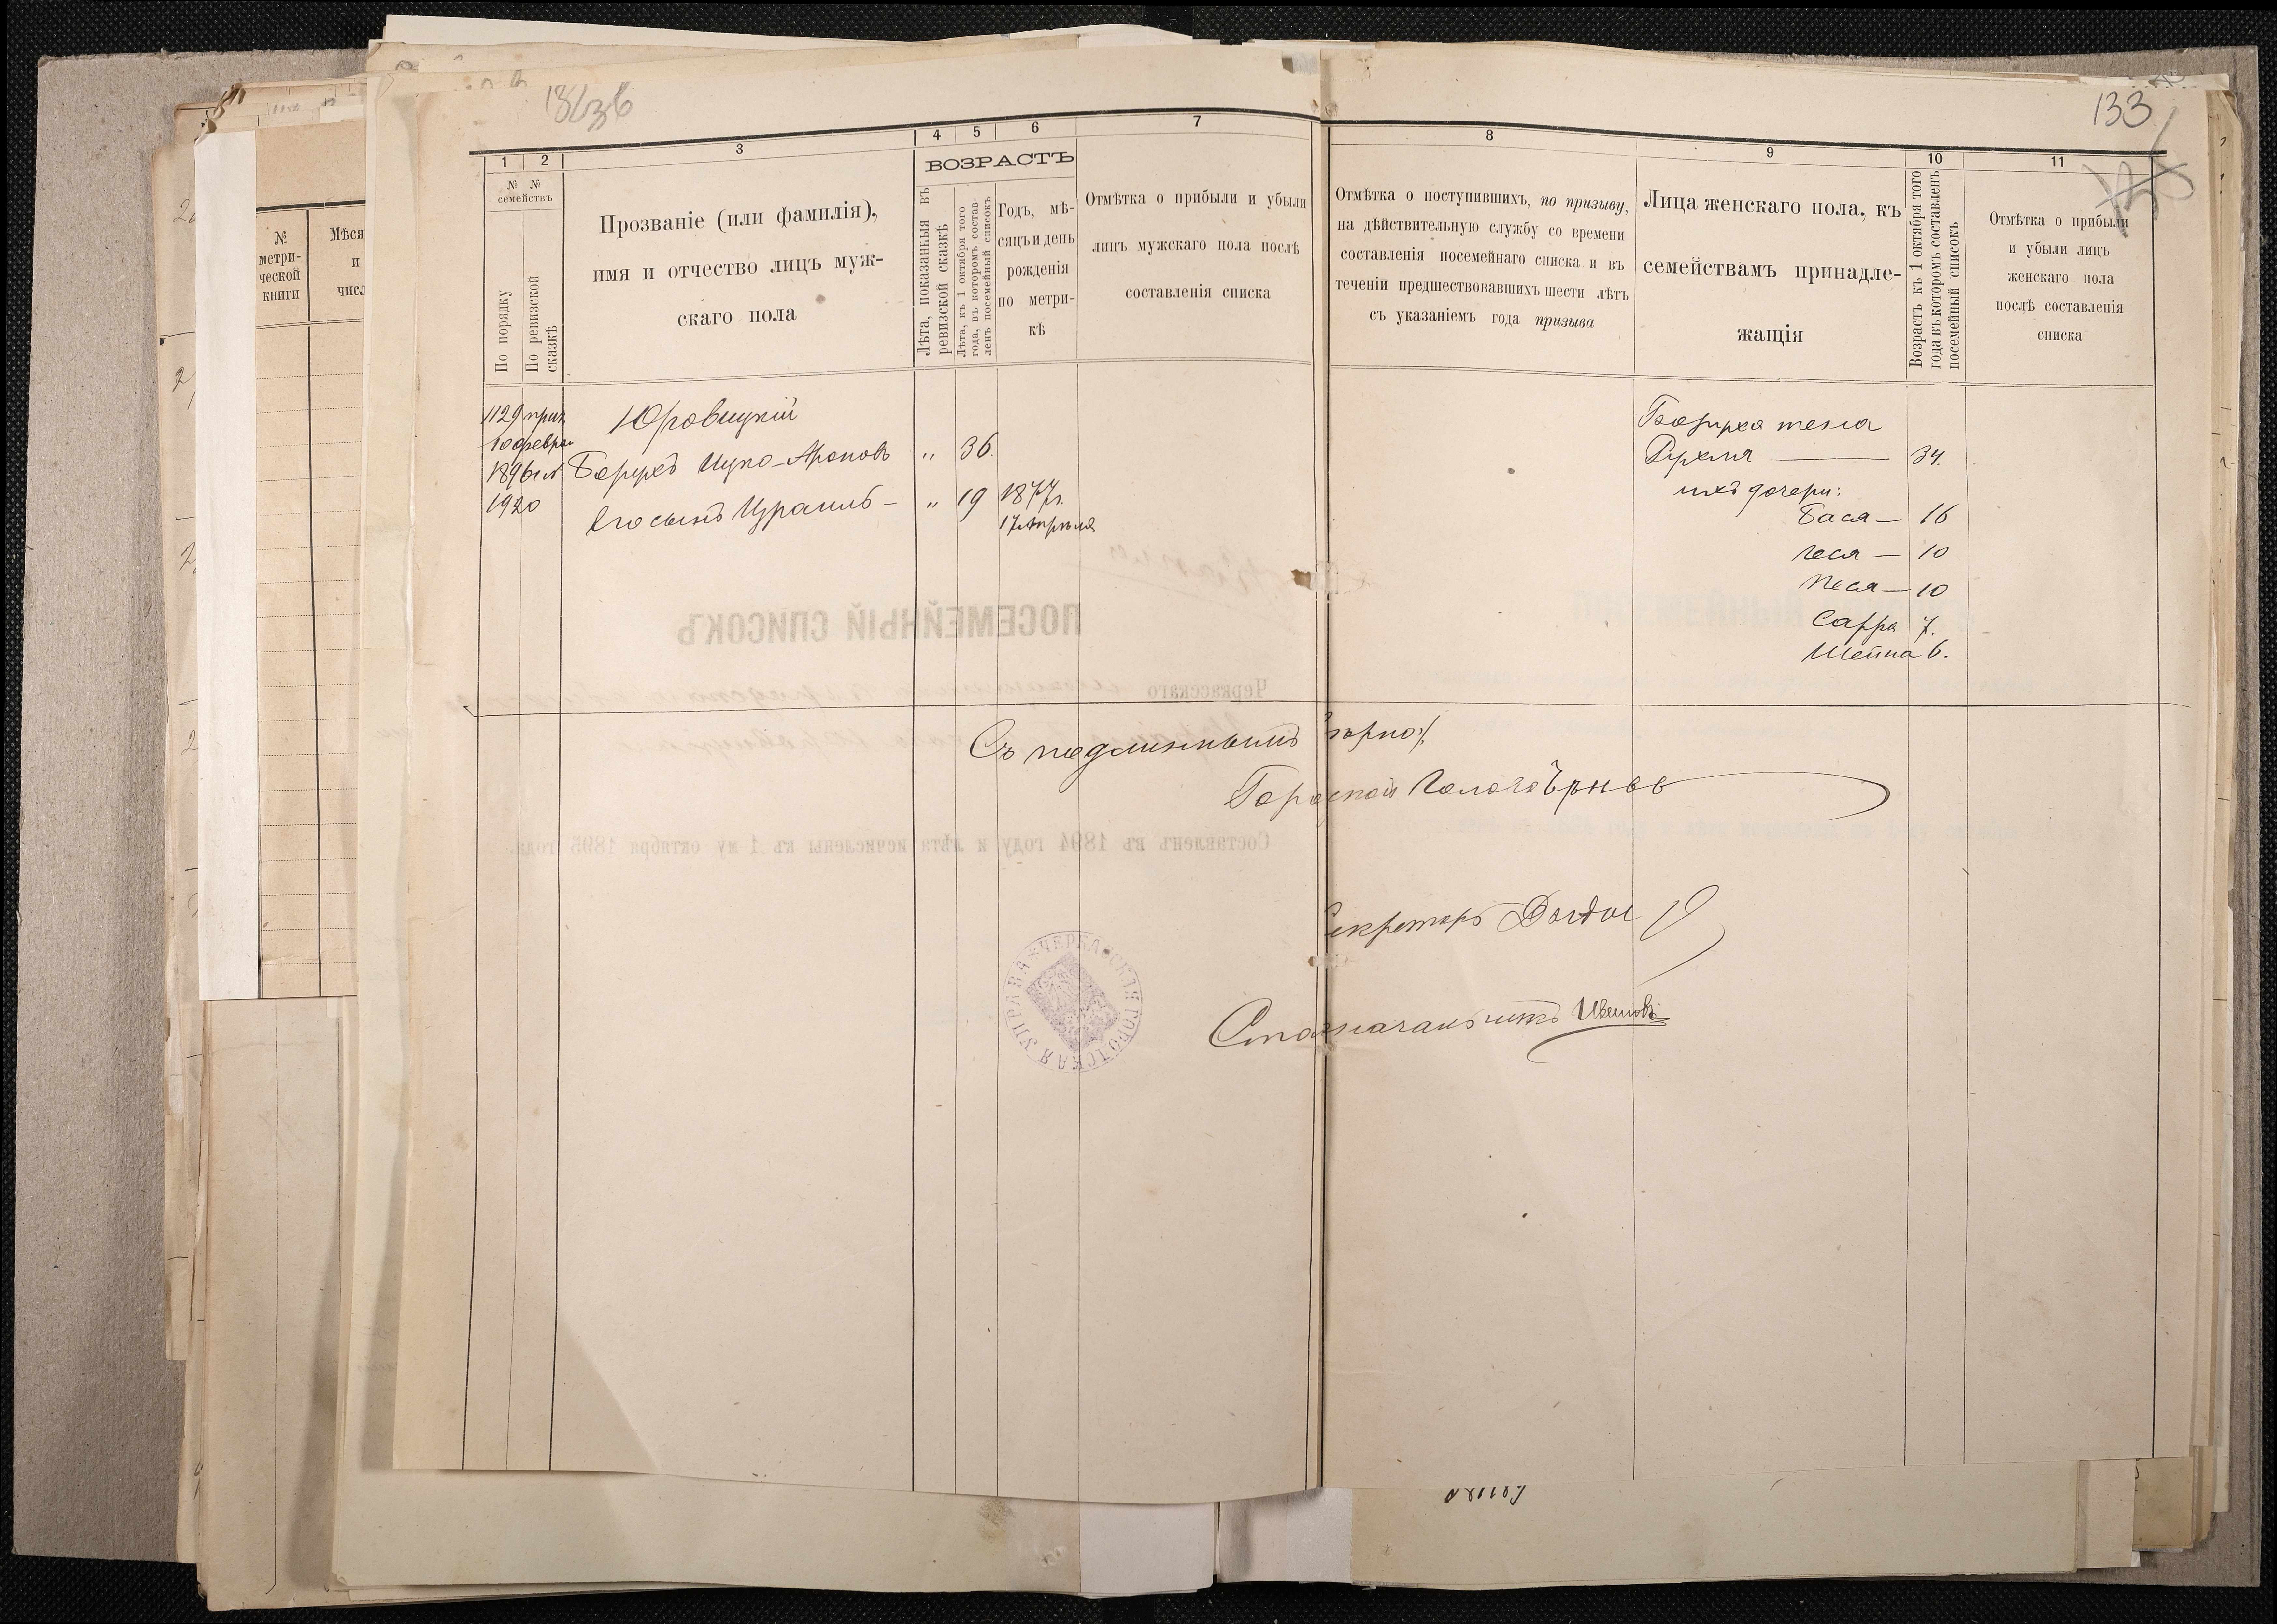 133
1 2 3 4 5 6 7
8 9 10 11
№ № семействъ
По порядку
По ревизской сказкѣ
Прозваніе (или фамилія),
имя и отчество лицъ муж-
скаго пола
ВОЗРАСТЪ
Лѣта, показанныя въ
ревизской сказкѣ
Лѣта, къ 1 октября того
года, въ которомъ состав-
ленъ посемейный списокъ
Годъ, мѣ-
сяцъ и день
рожденія
по метри-
кѣ
Отмѣтка о прибыли и убыли
лицъ мужскаго пола послѣ
составленія списка
Отмѣтка о поступившихъ, по призыву,
на дѣйствительную службу со времени
составленія посемейнаго списка и въ
теченіи предшествовавшихъ шести лѣтъ
съ указаніемъ года призыва
Лица женскаго пола, къ
семействамъ принадле-
жащія
Возрастъ къ 1 октября того
года въ которомъ составленъ
посемейный списокъ
Отмѣтка о прибыли
и убыли лицъ
женскаго пола
послѣ составленія
списка
№
метри-
ческой
книги
Мѣся
и
числ
1129
1896
1920
Юровицкій
Борухъ Ицко-Ароновъ „ 36.
Его сынъ Израиль - „ 19 1877г.
17 Апрѣля
Боруха жена
Рухля — 34.
ихъ дочери:
Бася — 16
Песя — 10
Сарра 7.
Шейна 6.
Съ подлиннымъ вѣрно:
Городской Голова
Секретарь
Столоначальникъ
ЧЕРКАССКАЯ ГОРОДСКАЯ УПРАВА
ПОСЕМЕЙНЫЙ СПИСОКЪ
Черкасскаго
Составленъ въ 1894 году и лѣта исчислены къ 1 му октября 1895 года.